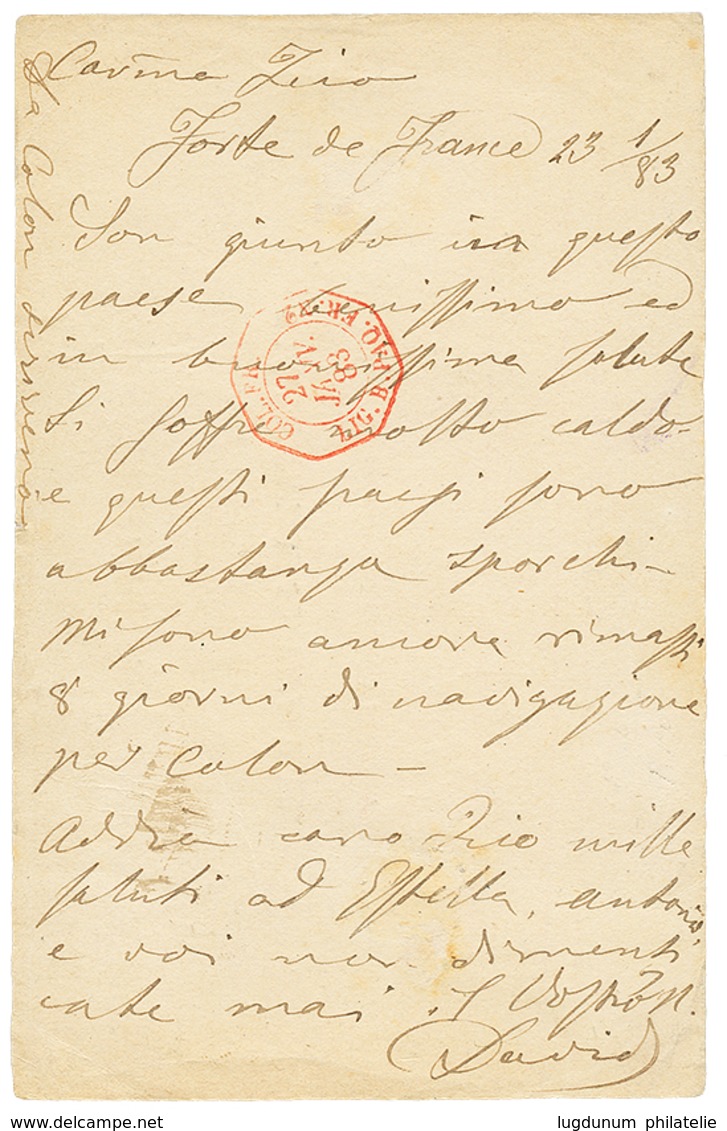 Car.mo Zio
Forte de France 23 1/83
Son giunto in questo
paese benissimo ed
in buonissima salute
Si soffre molto caldo
e questi paesi sono
abbastanza sporchi-
Mi sono ancora rimasti
8 giorni di navigazione
per Colon -
Addio caro Zio mille
saluti ad Estella, Antonio
e voi non dimenti
cate mai il Vostro
David
Da Colon scriverò
COL. FR. LIG. B PAQ. FR. N°2
27
JANV.
83
lugdunum philatelie